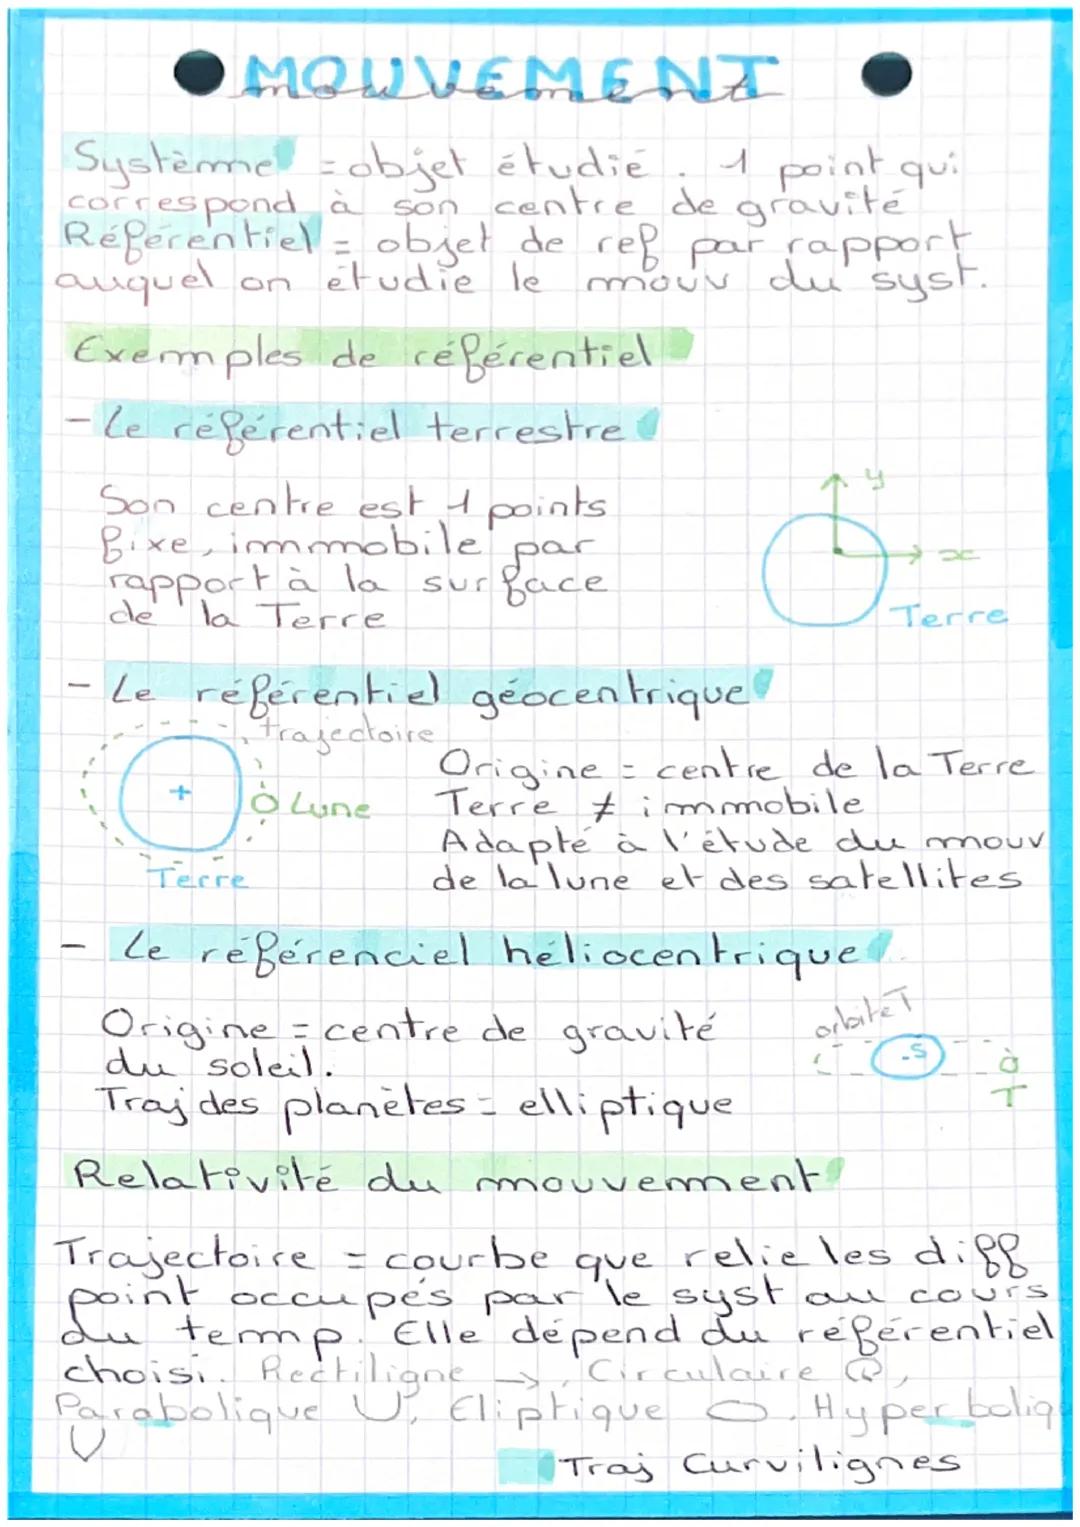 MOUVEMENT
mouvement
Système = objet étudié. 1 point qui
correspond à son centre de gravité
Référentiel = objet de ref par rapport
auquel on étudie le mouv du syst.
Exemples de référentiel
- Le référentiel terrestre
Son centre est 1 points
fixe, immobile par
rapport à la surface
de la Terre
y
x
Terre
- Le référentiel géocentrique
trajectoire
Lune
Terre
Origine = centre de la Terre
Terre ≠ immobile
Adapté à l'étude du mouv
de la lune et des satellites
- Le référenciel héliocentrique
Origine = centre de gravité
du soleil.
Traj des planètes = elliptique
orbite T
.S
T
Relativité du mouvement
Trajectoire = courbe que relie les diff
point occupés par le syst au cours
du temp. Elle dépend du référentiel
choisi. Rectiligne →, Circulaire,
Parabolique U, Eliptique, Hyperboliq
Traj Curvilignes